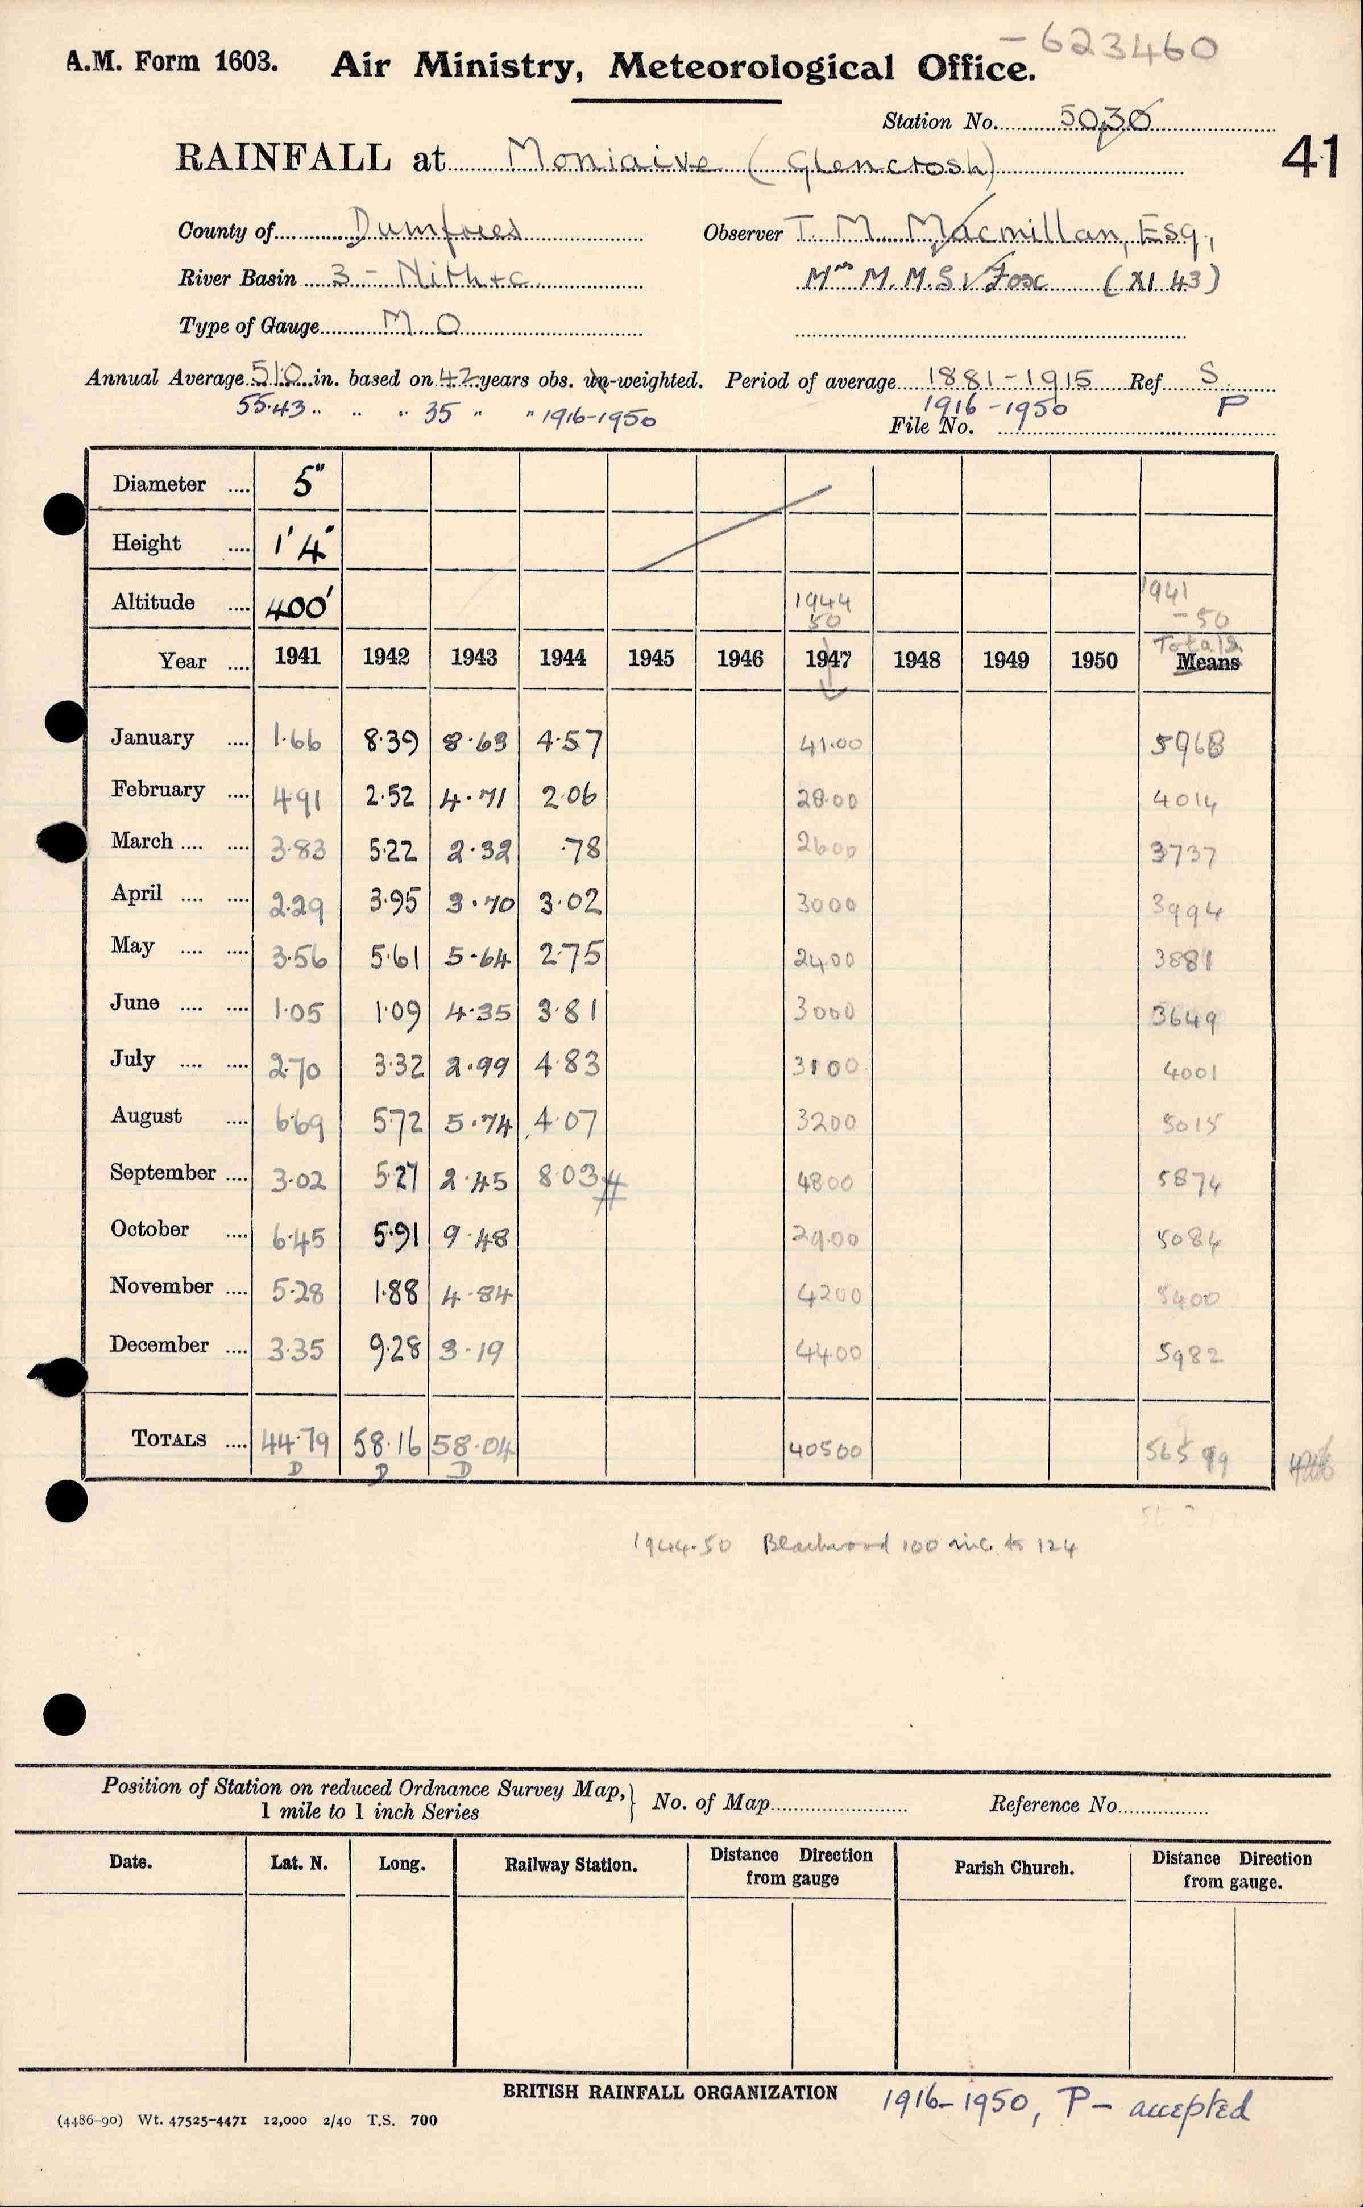 - 623460
A.M. Form 1603. Air Ministry, Meteorological Office.
Station No. 5030
41
RAINFALL at Moniaive (Glencrosh)
County of Dumfries Observer T. M. Macmillan, Esq.,
River Basin 3 - Nith &c. Mrs M. M. S. Fox (XI 43)
Type of Gauge M O
Annual Average 51.0 in. based on 42 years obs. un-weighted. Period of average 1881-1915 Ref S.
55.43 " " " 35 " " 1916-1950 1916-1950 P
File No.
Diameter .... 5"
Height .... 1' 4"
Altitude .... 400' 1944 50 1941 -50
Year .... 1941 1942 1943 1944 1945 1946 1947 1948 1949 1950 Totals Means
January .... 1.66 8.39 8.63 4.57 41.00 5968
February .... 4.91 2.52 4.71 2.06 28.00 4014
March .... .... 3.83 5.22 2.32 .78 2600 3737
April .... .... 2.29 3.95 3.70 3.02 3000 3994
May .... .... 3.56 5.61 5.64 2.75 2400 3881
June .... .... 1.05 1.09 4.35 3.81 3000 3649
July .... .... 2.70 3.32 2.99 4.83 3100 4001
August .... 6.69 5.72 5.74 4.07 3200 5015
September .... 3.02 5.27 2.45 8.03 # 4800 5874
October .... 6.45 5.91 9.48 29.00 5084
November .... 5.28 1.88 4.84 4200 5400
December .... 3.35 9.28 3.19 4400 5982
TOTALS .... 44.79 58.16 58.04 40500 565 99
D D D
1944-50 Blackwood 100 inc. to 124
Position of Station on reduced Ordnance Survey Map, } No. of Map Reference No.
1 mile to 1 inch Series
Date. Lat. N. Long. Railway Station. Distance Direction from gauge Parish Church. Distance Direction from gauge.
BRITISH RAINFALL ORGANIZATION 1916-1950, P - accepted
(4486-90) Wt. 47525-4471 12,000 2/40 T.S. 700